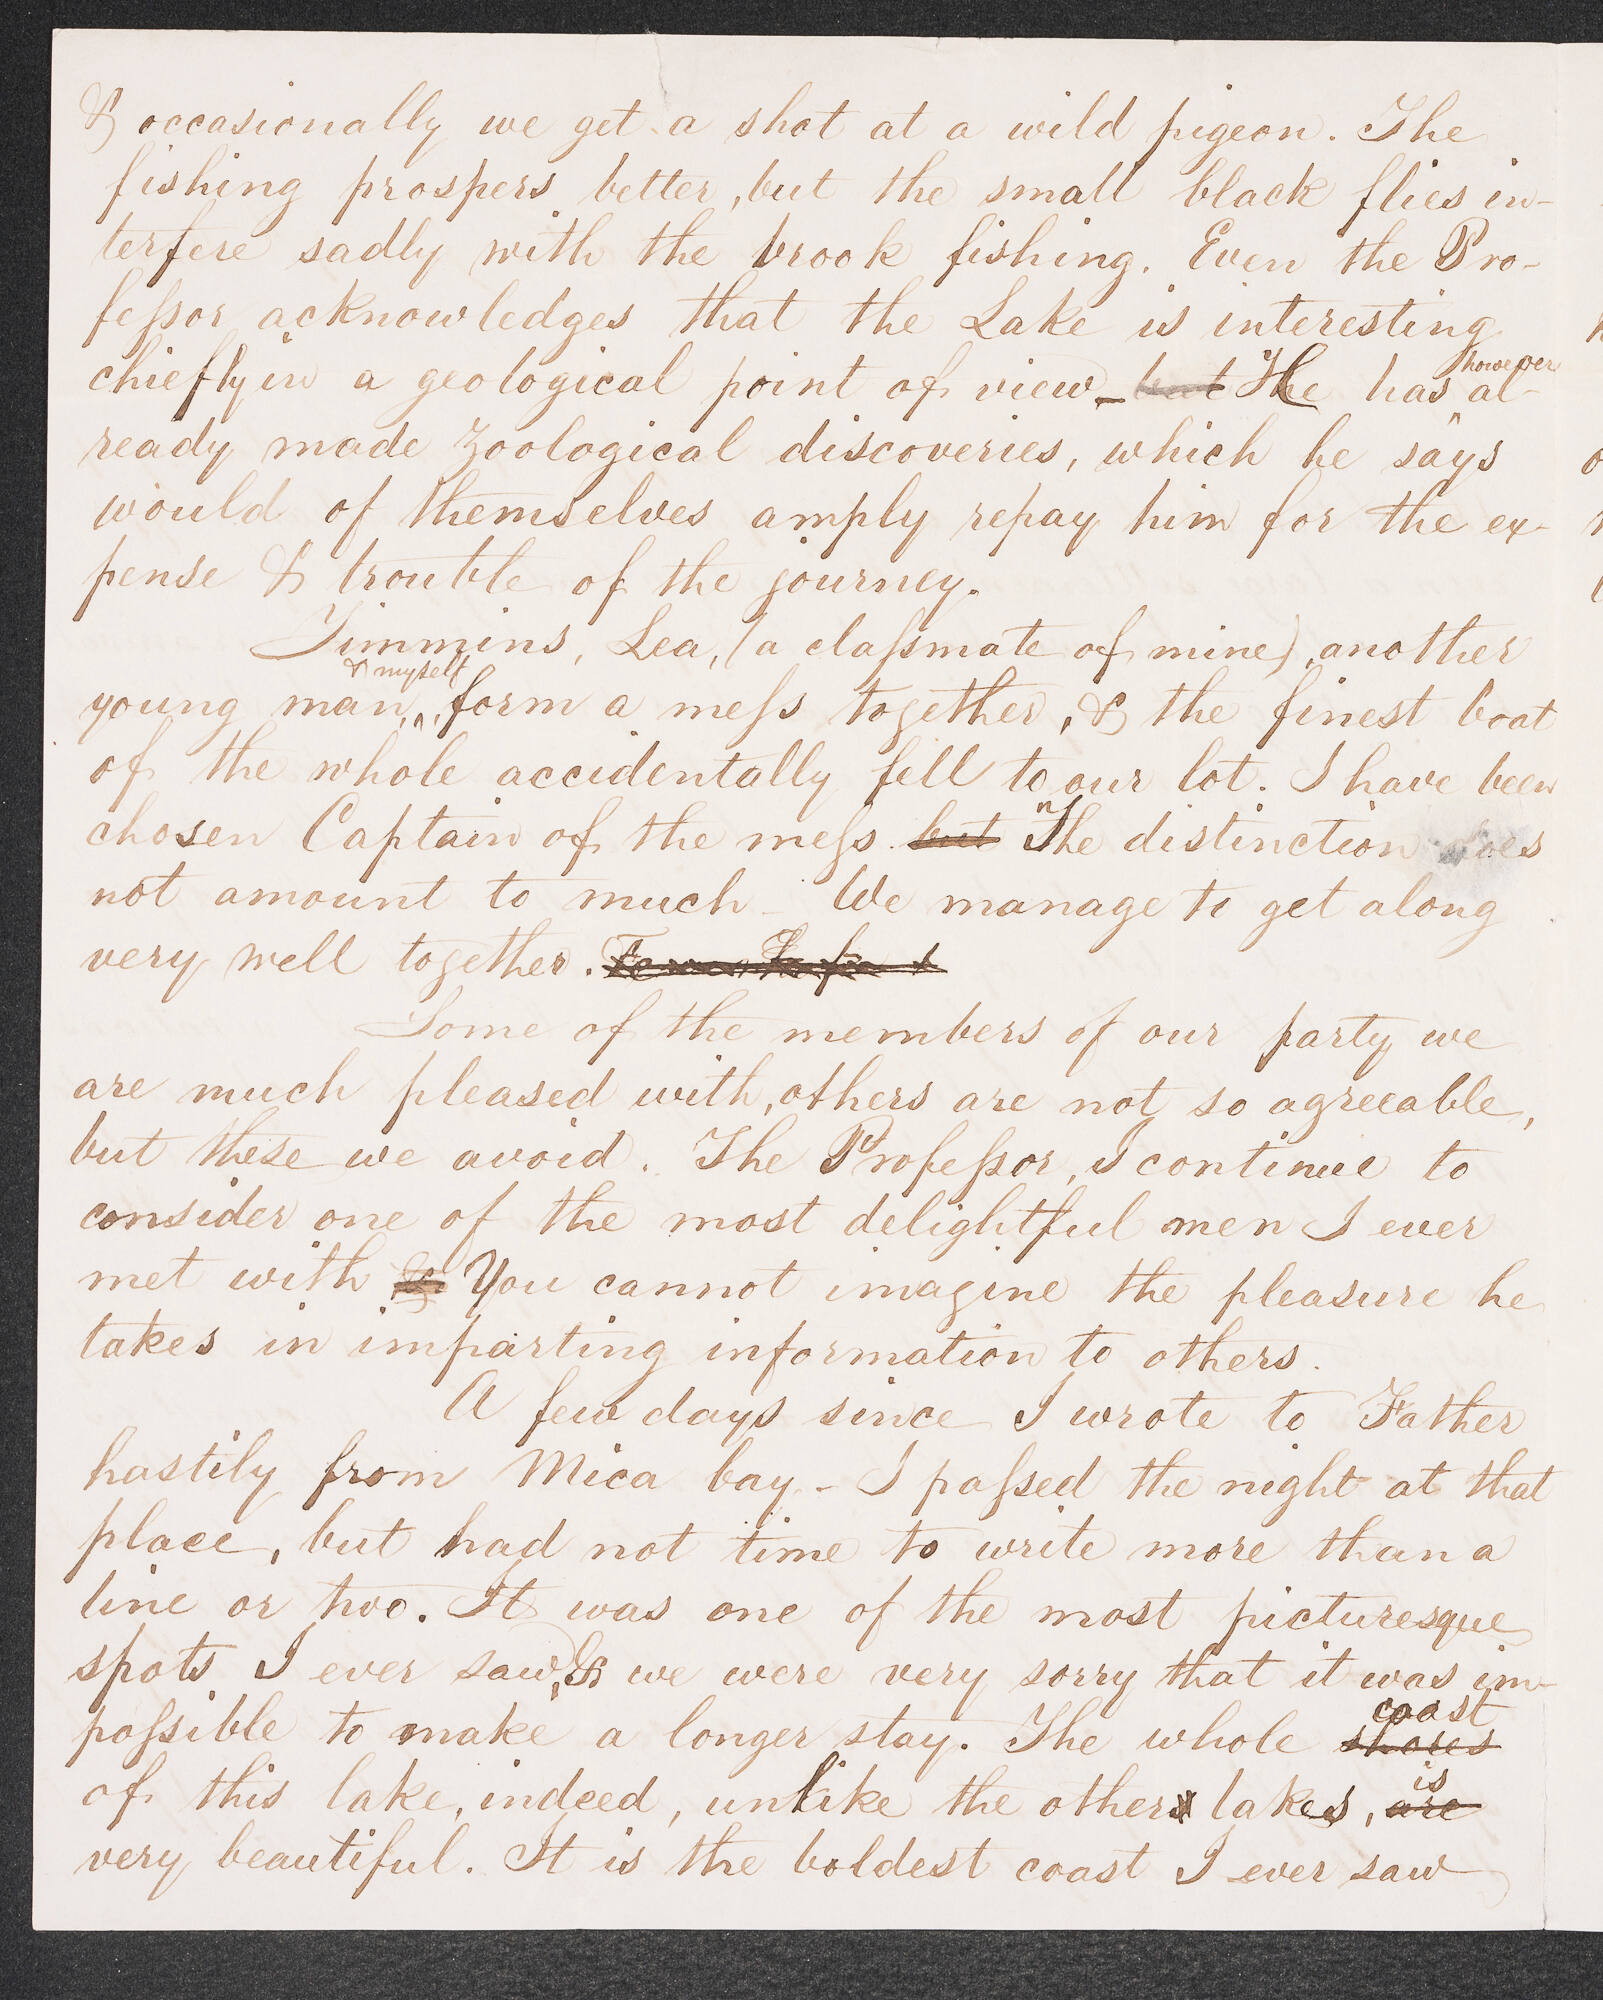 & occasionally we get a shot at a wild pigeon. The
fishing prospers better, but the small black flies in-
terfere sadly with the brook fishing. Even the Pro-
feſsor acknowledges that the Lake is interesting
chiefly in a geological point of view – but He has however al-
ready made zoological discoveries, which he says
would of themselves amply repay him for the ex-
pense & trouble of the journey.
Timmins, Lea, (a claſsmate of mine), another
young man, & myself, form a meſs together, & the finest boat
of the whole accidentally fell to our lot. I have been
chosen Captain of the meſs. but The distinction does
not amount to much – We manage to get along
very well together.
Some of the members of our party we
are much pleased with, others are not so agreeable,
but these we avoid. The Profeſsor, I continue to
consider one of the most delightful men I ever
met with & You cannot imagine the pleasure he
takes in imparting information to others.
A few days since I wrote to Father
hastily from Mica bay – I paſsed the night at that
place, but had not time to write more than a
line or two. It was one of the most picturesque
spots I ever saw, & we were very sorry that it was im-
poſsible to make a longer stay. The whole shores coast
of this lake, indeed, unlike the others lakes, are is
very beautiful. It is the boldest coast I ever saw